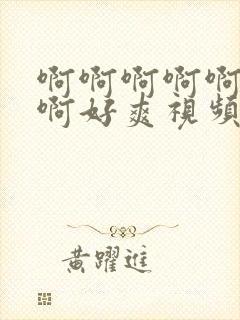 啊啊啊啊啊
啊好爽視頻
黄躍進